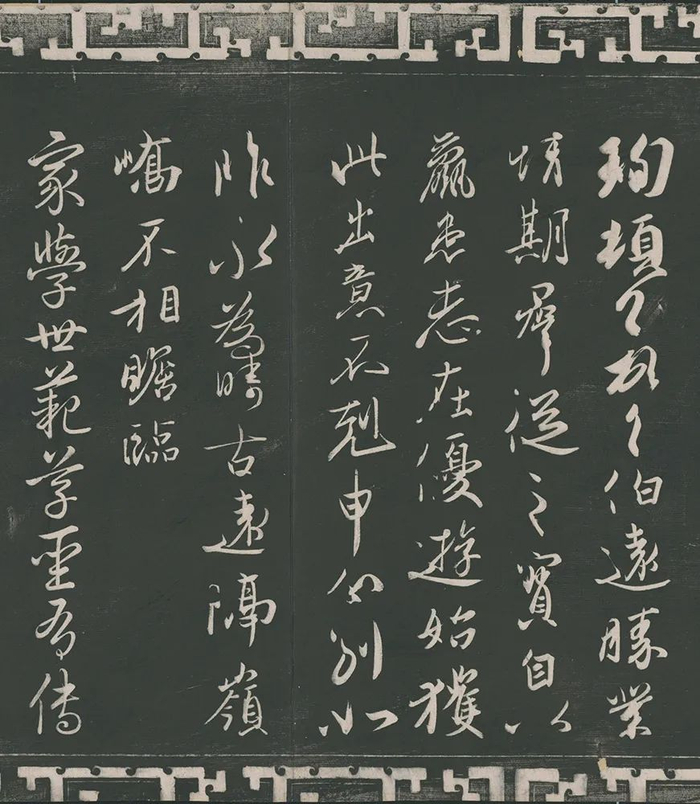 珣頓々首々伯遠勝業
情期羣從之寶自以
羸患志在優遊始獲
此出意不剋申分別如
昨永為疇古遠隔嶺
嶠不相瞻臨
家學世範草聖有傳